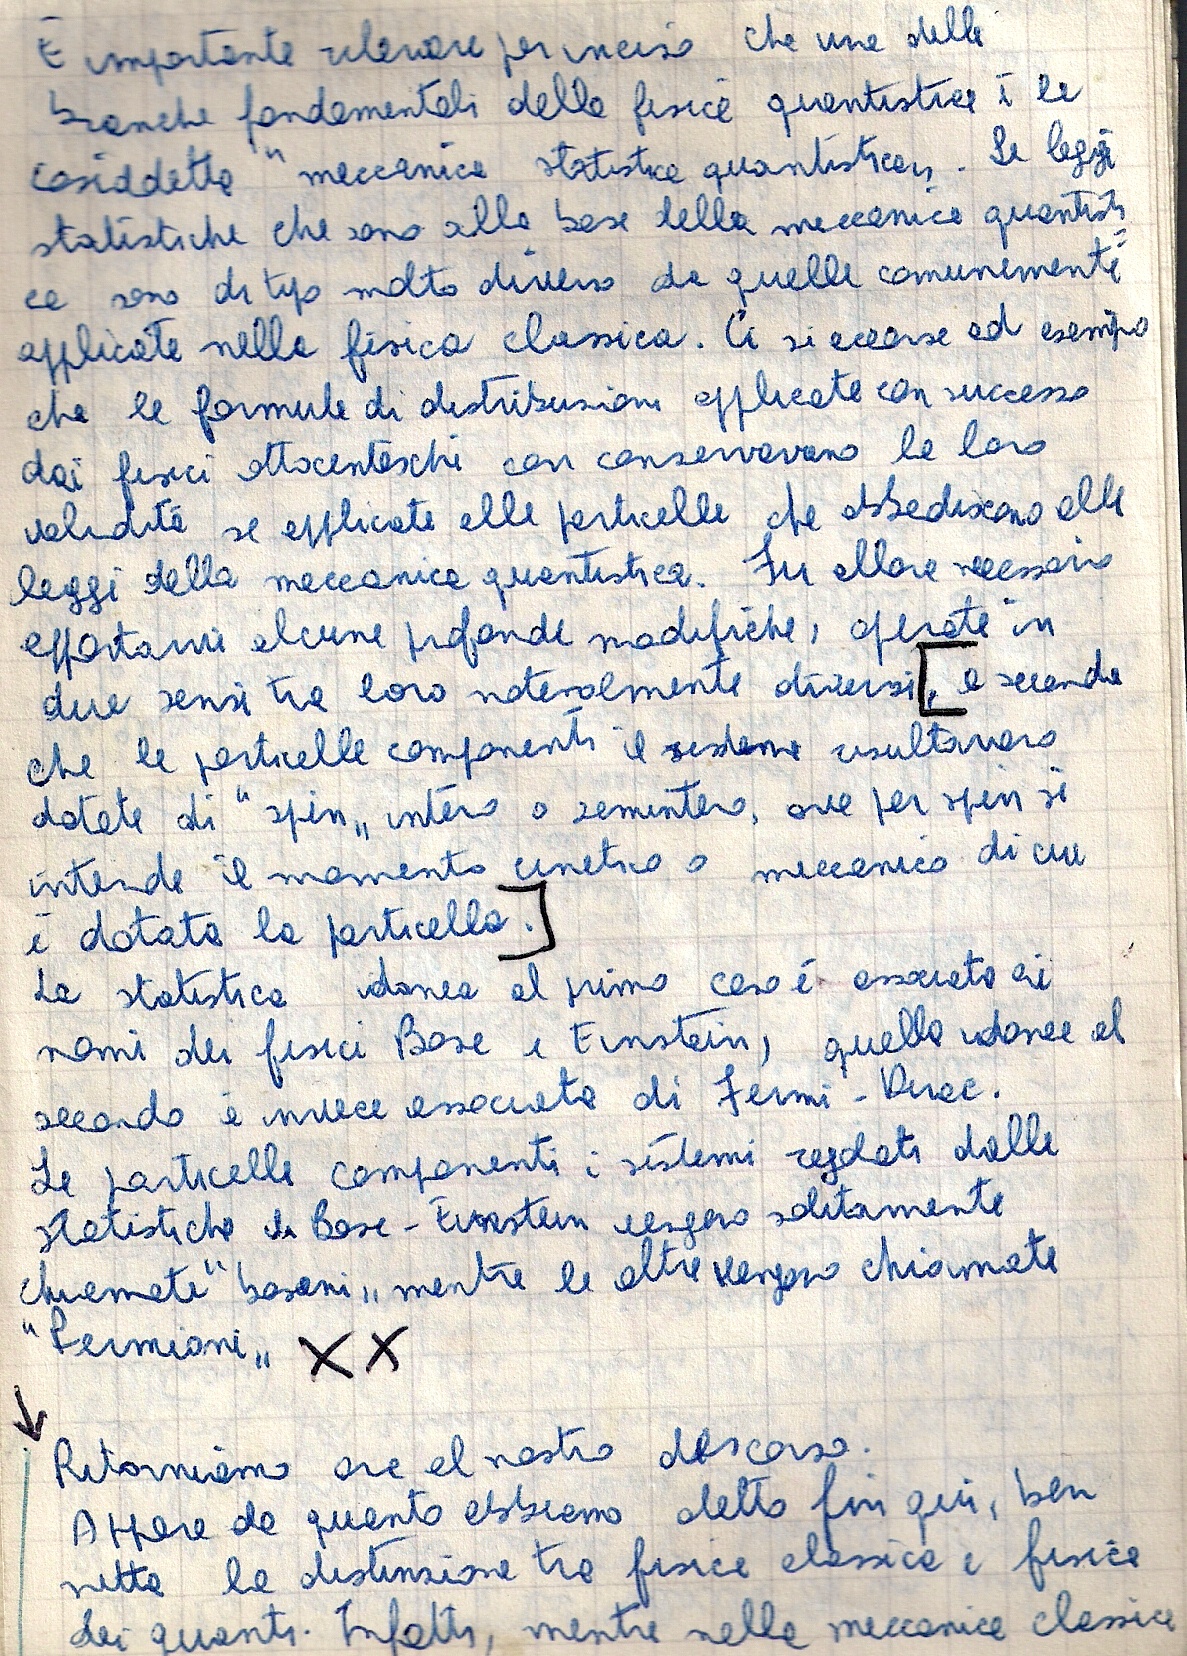 È importante rilevare per inciso che una delle
branche fondamentali della fisica quantistica è la
cosiddetta "meccanica statistica quantistica„. Le leggi
statistiche che sono alla base della meccanica quantisti
ca sono di tipo molto diverso da quelle comunemente
applicate nella fisica classica. Ci si accorse ad esempio
che le formule di distribuzione applicate con successo
dai fisici ottocenteschi non conservavano la loro
validità se applicate alle particelle che obbediscono alle
leggi della meccanica quantistica. Fu allora necessario
apportarvi alcune profonde modifiche, operate in
due sensi tra loro notevolmente diversi, [a seconda
che le particelle componenti il sistema risultavano
dotate di "spin„ intero o semintero, ove per spin si
intende il momento cinetico o meccanico di cui
è dotata la particella.]
La statistica idonea al primo caso è associata ai
nomi dei fisici Bose e Einstein, quella idonea al
secondo è invece associata di Fermi - Dirac.
Le particelle componenti i sistemi regolati dalle
statistiche di Bose - Einstein vengono solitamente
chiamate "bosoni„ mentre le altre vengono chiamate
"Fermioni„ XX
Ritorniamo ora al nostro discorso.
Appare da quanto abbiamo detto fin qui, ben
netta la distinzione tra fisica classica e fisica
dei quanti. Infatti, mentre nella meccanica classica